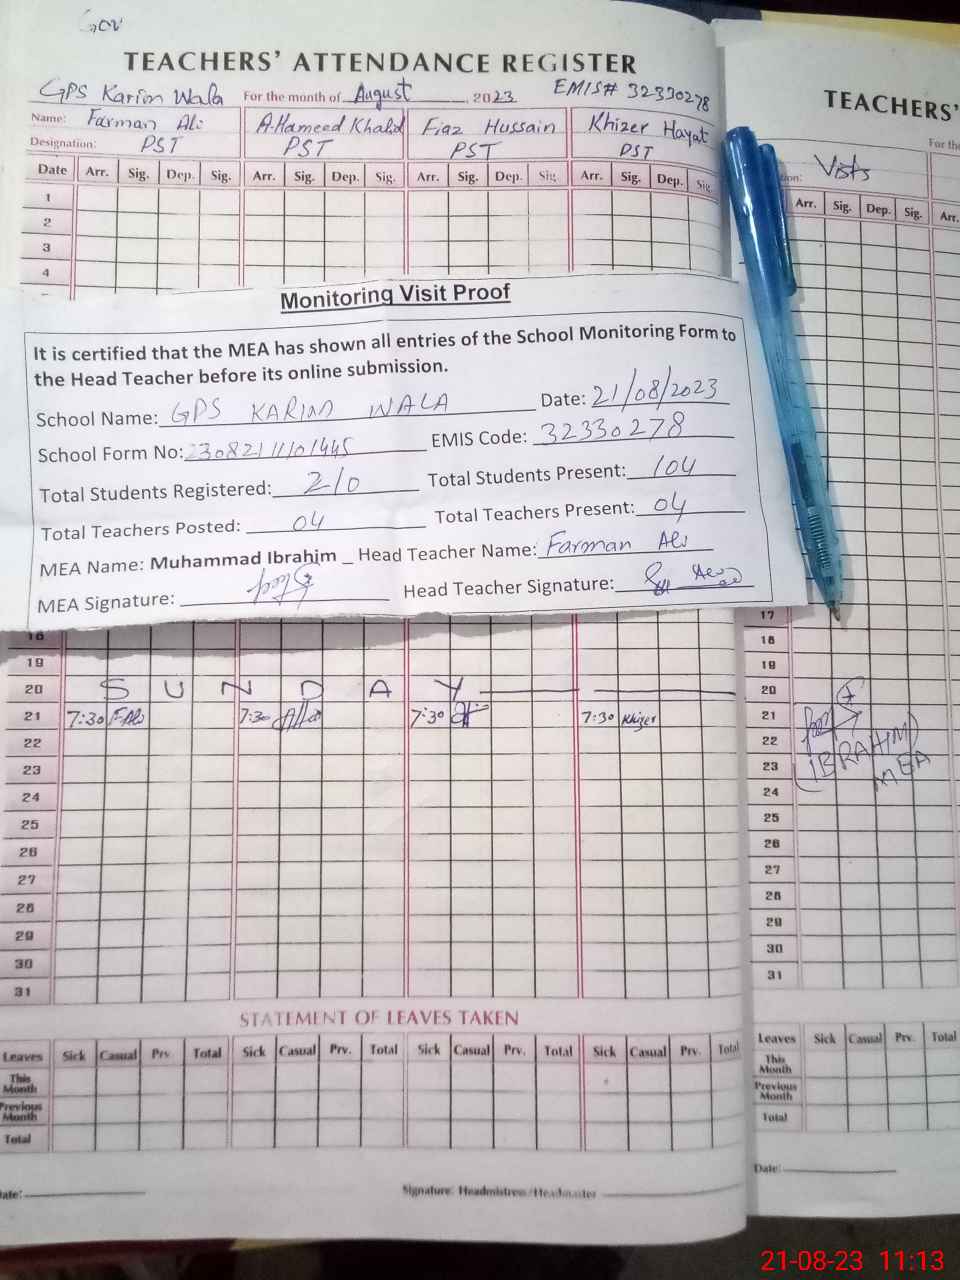 Gov
TEACHERS' ATTENDANCE REGISTER
GPS Karim Wala For the month of August, 2023 EMIS# 32330278
Name: Farman Ali A.Hameed Khalid Fiaz Hussain Khizer Hayat
Designation: PST PST PST PST
Date Arr. Sig. Dep. Sig. Arr. Sig. Dep. Sig. Arr. Sig. Dep. Sig. Arr. Sig. Dep. Sig.
1
2
3
4
Monitoring Visit Proof
It is certified that the MEA has shown all entries of the School Monitoring Form to
the Head Teacher before its online submission.
School Name: GPS KARIM WALA Date: 21/08/2023
School Form No: EMIS Code: 32330278
Total Students Registered: 210 Total Students Present: 104
Total Teachers Posted: 04 Total Teachers Present: 04
MEA Name: Muhammad Ibrahim _ Head Teacher Name: Farman Ali
MEA Signature: Head Teacher Signature:
18
19
20 SUNDAY
21 7:30 F.Ali 7:30 7:30 7:30 Khizer
22
23
24
25
26
27
28
29
30
31
STATEMENT OF LEAVES TAKEN
Leaves Sick Casual Prv. Total Sick Casual Prv. Total Sick Casual Prv. Total Sick Casual Prv. Total
This Month
Previous Month
Total
Date: Signature: Headmistress/Headmaster
TEACHERS'
For the
Visits
Arr. Sig. Dep. Sig. Arr.
17
18
19
20
21
22
23
(IBRAHIM)
MEA
24
25
26
27
28
29
30
31
Leaves Sick Casual Prv. Total
This Month
Previous Month
Total
Date:
21-08-23 11:13